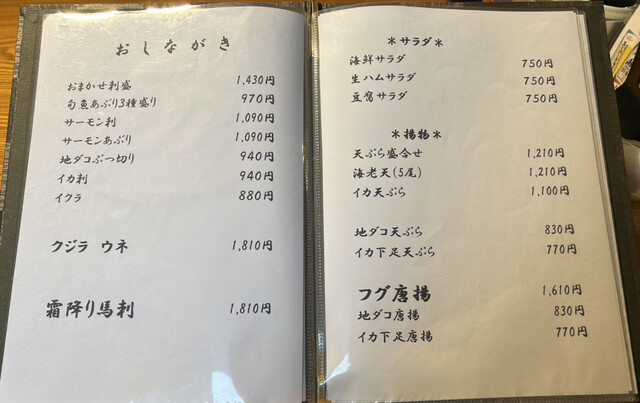 おしながき
おまかせ刺盛 1,430円
旬魚あぶり3種盛り 970円
サーモン刺 1,090円
サーモンあぶり 1,090円
地ダコぶつ切り 940円
イカ刺 940円
イクラ 880円
クジラ ウネ 1,810円
霜降り馬刺 1,810円
＊サラダ＊
海鮮サラダ 750円
生ハムサラダ 750円
豆腐サラダ 750円
＊揚物＊
天ぷら盛合せ 1,210円
海老天(5尾) 1,210円
イカ天ぷら 1,100円
地ダコ天ぷら 830円
イカ下足天ぷら 770円
フグ唐揚 1,610円
地ダコ唐揚 830円
イカ下足唐揚 770円